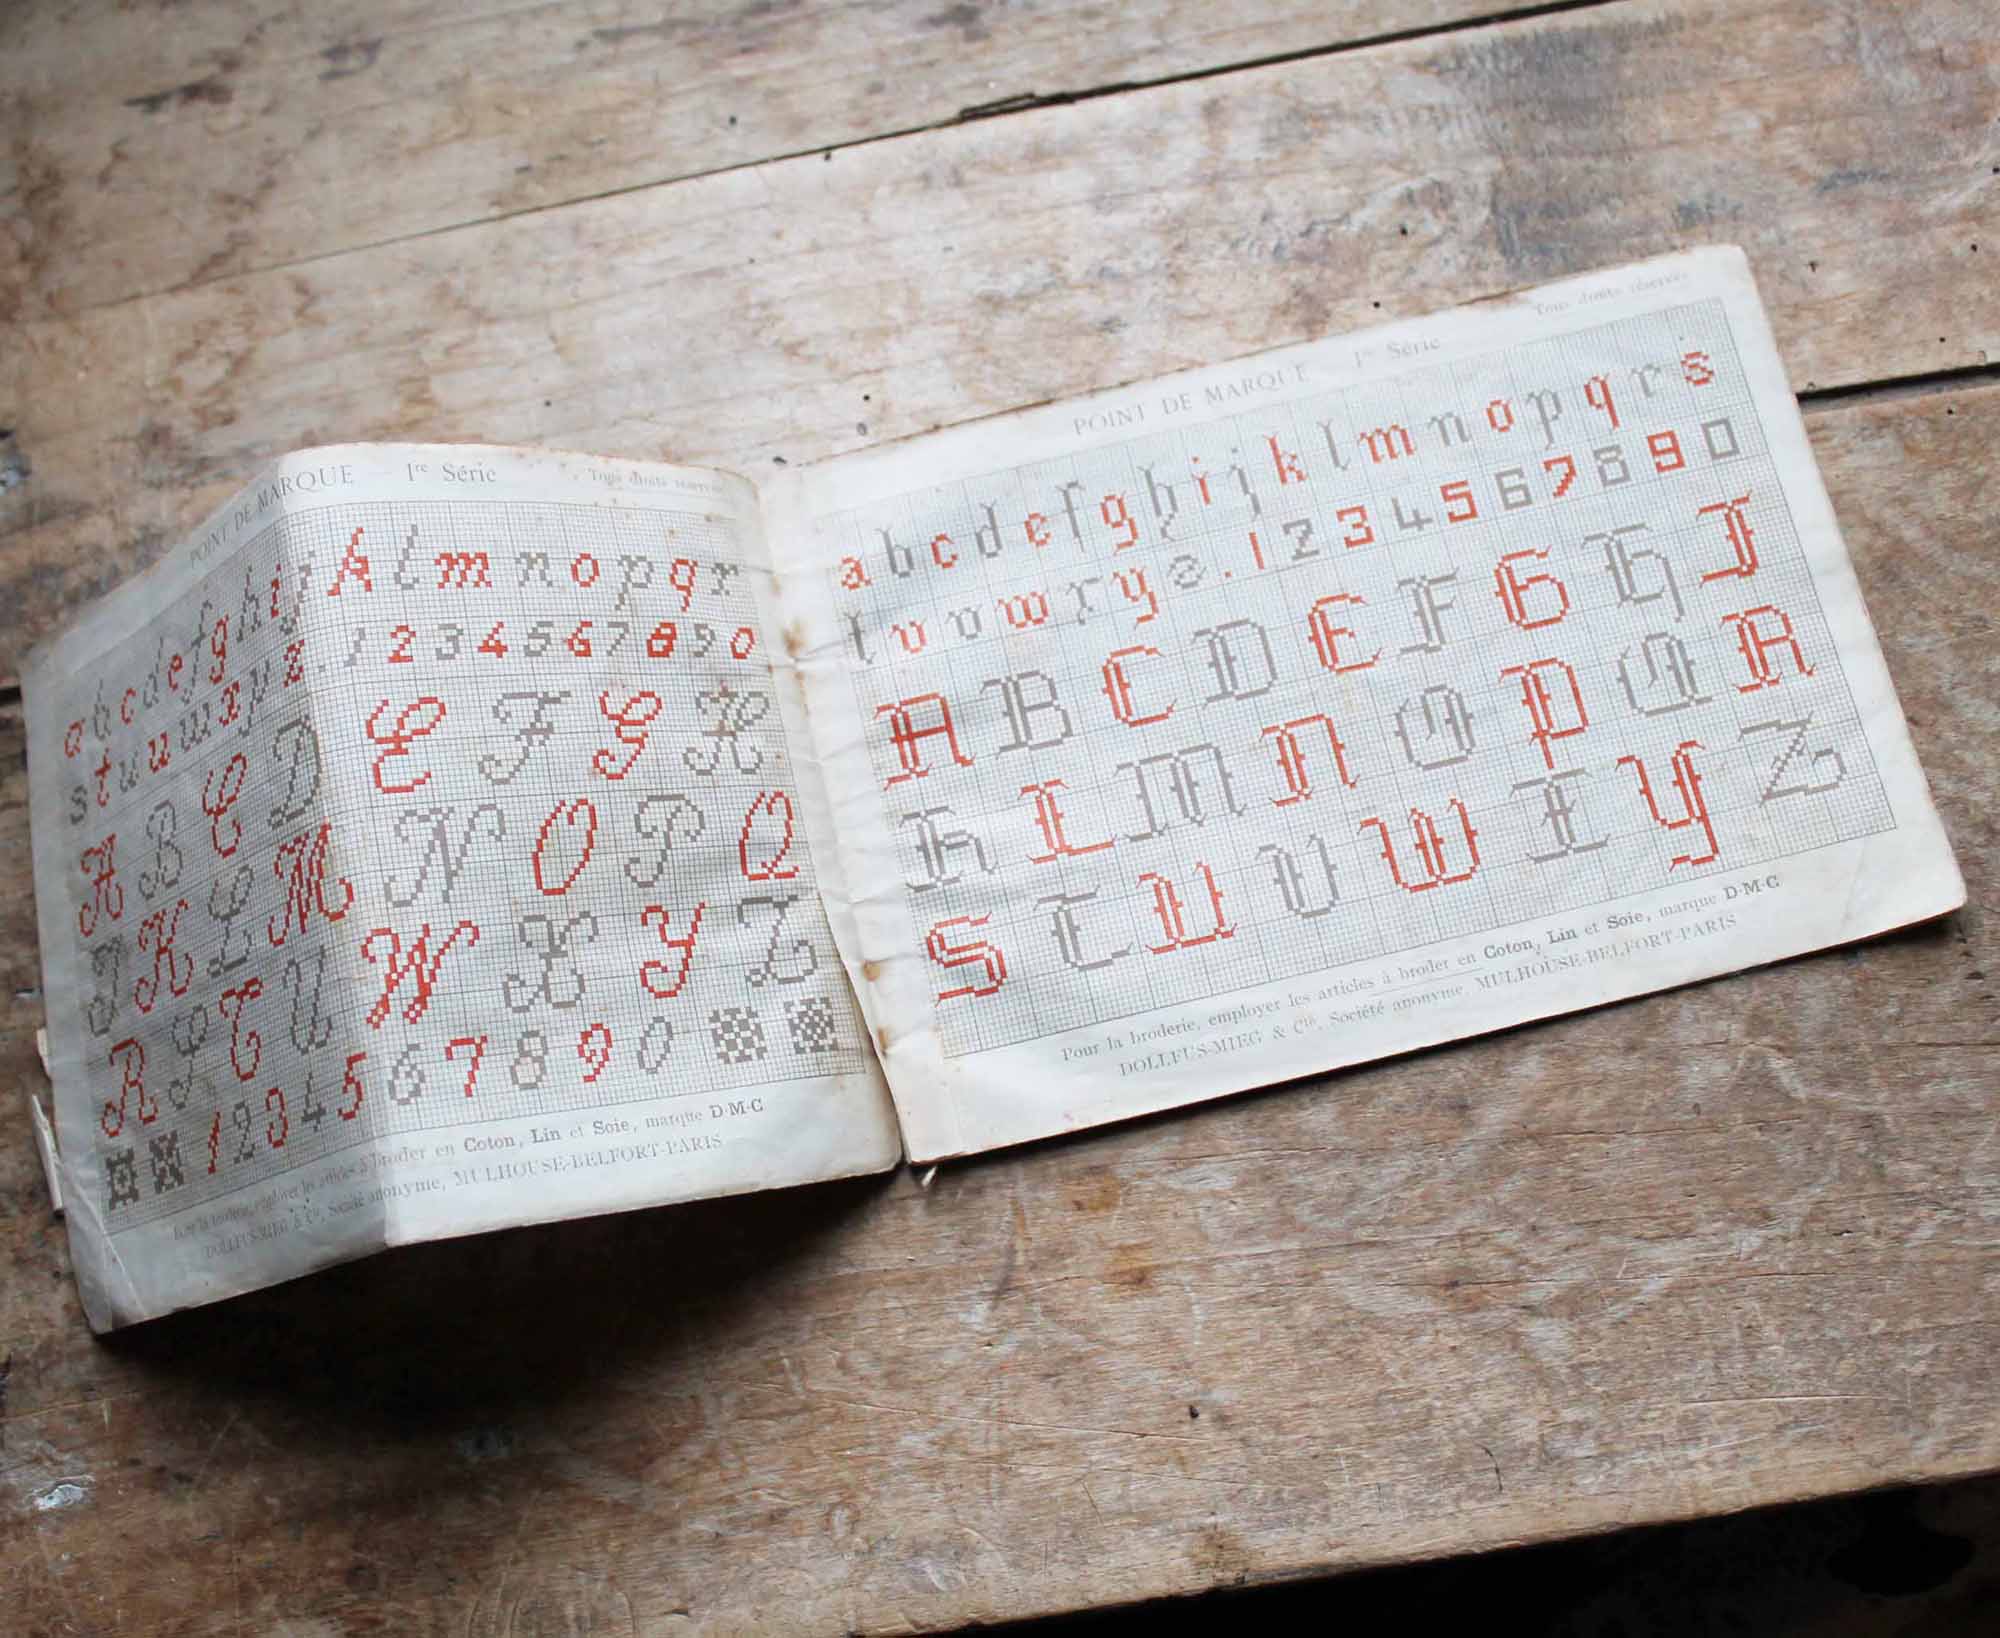 POINT DE MARQUE — 1re Série Tous droits réservés
a b c d e f g h i j k l m n o p q r
s t u v w x y z . 1 2 3 4 5 6 7 8 9 0
A B C D E F G H
J K L M N O P Q
R S T U W X Y Z
1 2 3 4 5 6 7 8 9 0
Pour la broderie, employer les articles à broder en Coton, Lin et Soie, marque D·M·C
DOLLFUS-MIEG & Cie, Société anonyme, MULHOUSE-BELFORT-PARIS
POINT DE MARQUE 1re Série Tous droits réservés
a b c d e f g h i j k l m n o p q r s
t u v w x y z . 1 2 3 4 5 6 7 8 9 0
A B C D E F G H I
K L M N O P Q R
S T U V W X Y Z
Pour la broderie, employer les articles à broder en Coton, Lin et Soie, marque D·M·C
DOLLFUS-MIEG & Cie, Société anonyme, MULHOUSE-BELFORT-PARIS